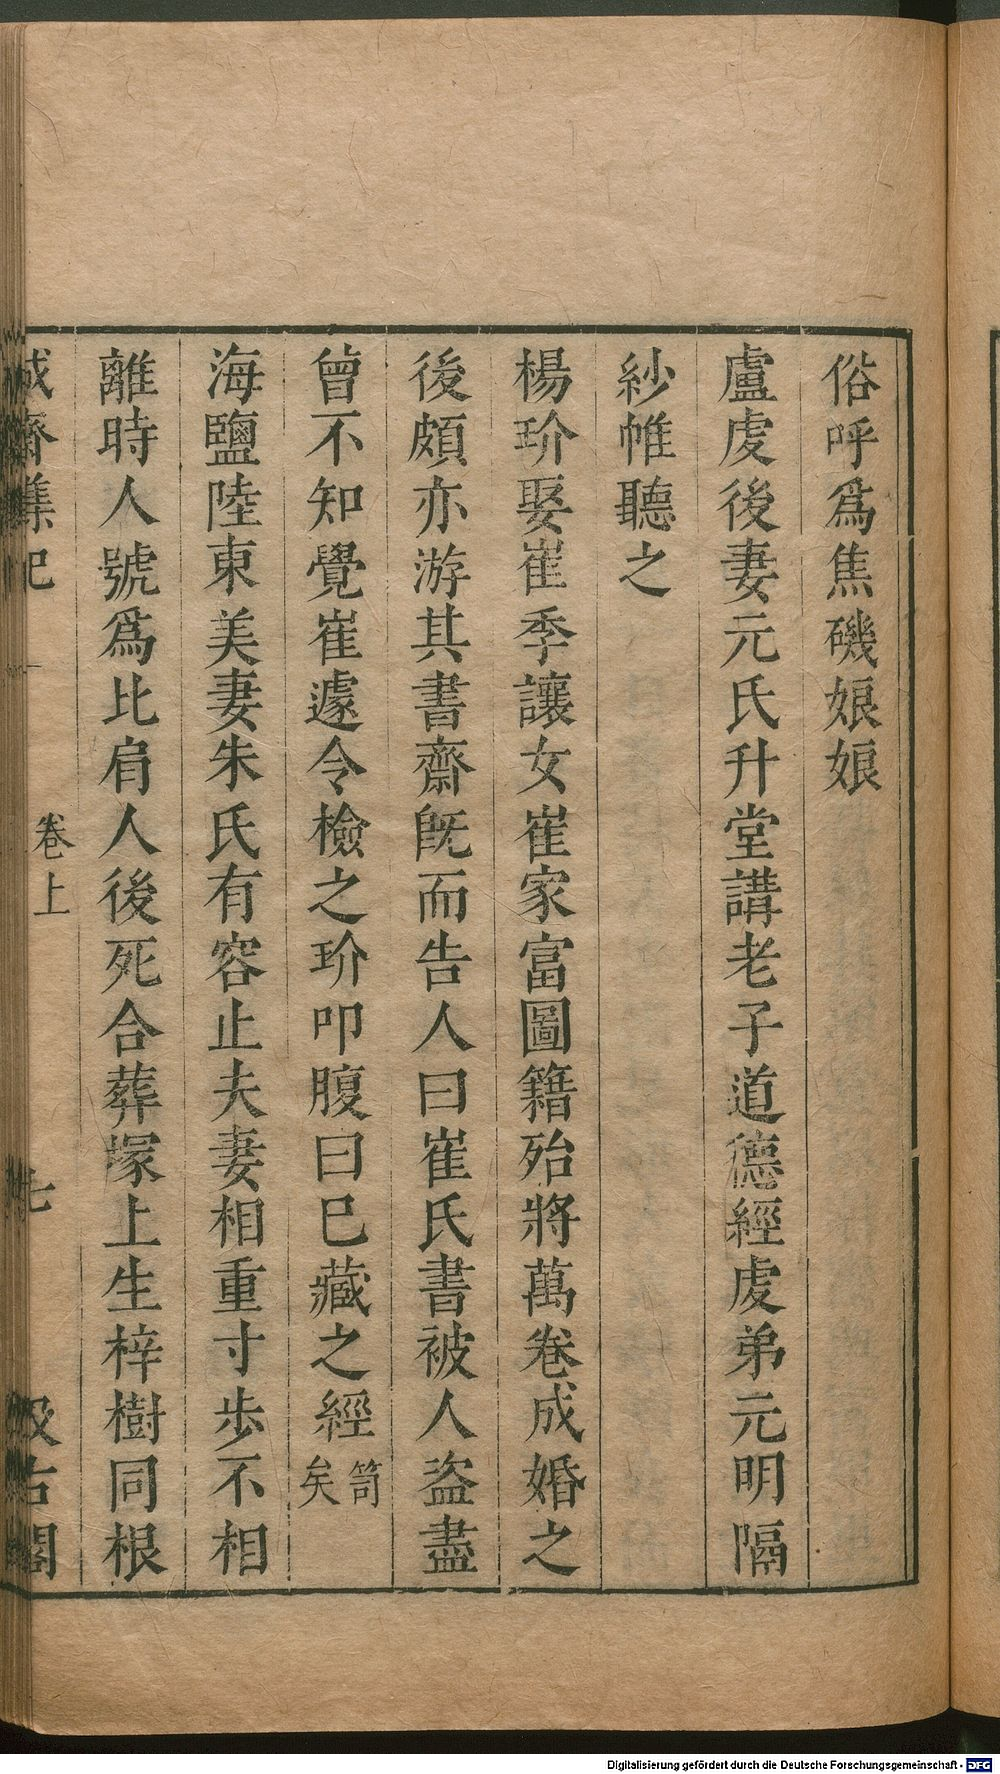 俗呼爲焦磯娘娘
盧虔後妻元氏升堂講老子道德經虔弟元明隔
紗帷聽之
楊玠娶崔季讓女崔家富圖籍殆將萬卷成婚之
後頗亦游其書齋旣而告人曰崔氏書被人盜盡
曾不知覺崔遽令檢之玠叩腹曰已藏之經笥矣
海鹽陸東美妻朱氏有容止夫妻相重寸步不相
離時人號爲比肩人後死合葬塚上生梓樹同根
誠齋集記
卷上
七
汲古閣
Digitalisierung gefördert durch die Deutsche Forschungsgemeinschaft - DFG